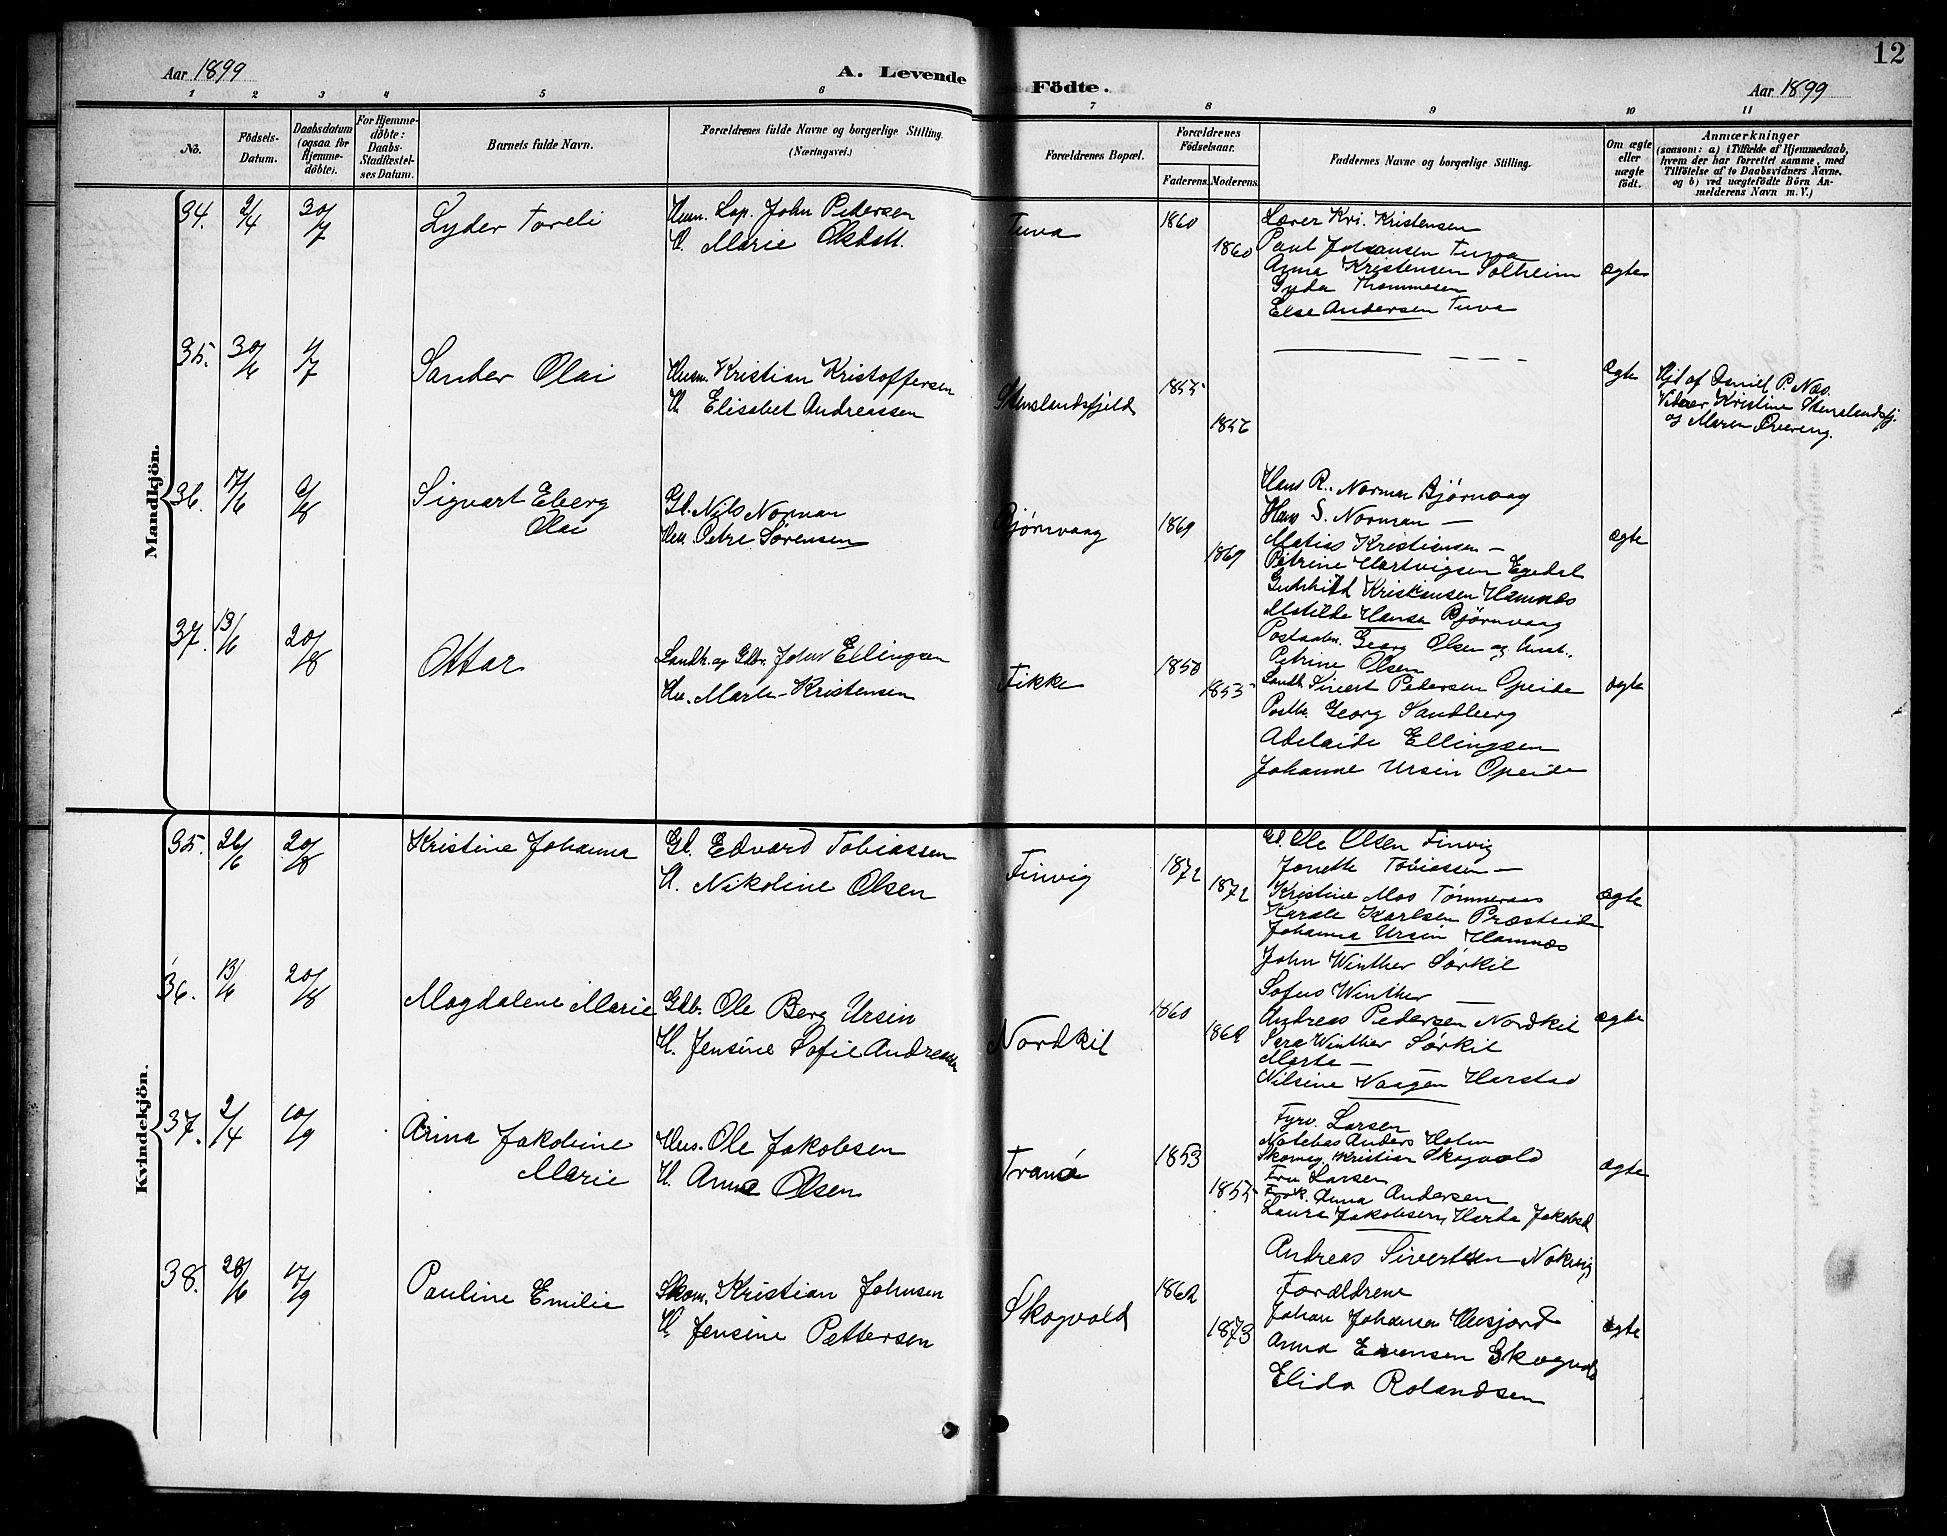 12
Aar 1899
A. Levende Födte.
Aar 1899
1 2 3 4 5 6 7 8 9 10 11
No.
Födsels-
Datum.
Daabsdatum
(ogsaa for
Hjemme-
döbte).
For Hjemme-
döbte:
Daabs-
Stadfæstel-
ses Datum.
Barnets fulde Navn.
Forældrenes fulde Navne og borgerlige Stilling.
(Næringsvei.)
Forældrenes Bopæl.
Forældrenes
Födselsaar.
Faderens. Moderens.
Faddernes Navne og borgerlige Stilling.
Om ægte
eller
uægte
født.
Anmærkninger
(saasom: a) i Tilfælde af Hjemmedaab,
hvem der har forrettet samme, med
Tilföielse af to Daabsvidners Navne,
og b) ved uægtefödte Börn An-
melderens Navn m. V.)
Mandkjön.
34. 2/4 30/7
Lyder Toreli
John Pedersen
H. Marie
Tuva
1860
1860
Lærer Kri. Kristensen
Paul Johansen Tuva
Anna Kristensen Solheim
Gyda Thommesen
Else Andersen Tuva
ægte
35. 30/6
Sander Olai
Husm. Kristian Kristoffersen
H. Elisabet Andreassen
Stenslandsfjeld
1855
1856
ægte
Hjd af Daniel P. Næs.
Vidner Kristine Stenslandsfj.
og Maren
36. 17/6 6/8
Sigvart Eberg
Olai
Gb. Nils Norman
Hu. Petra Sørensen
Bjørnvaag
1869
1869
Hans R. Norman Bjørnvaag
Hans S. Norman —
Matias Kristiansen —
Petrine Hartvigsen Egedal
Kristiansen Hamnæs
Matilde Hansen Bjørnvaag
ægte
37. 13/6 20/8
Ottar
Landh. og Gdbr. Johs Ellingsen
Hu. Marie Kristensen
Fikke
1850
1855
Postaabn. Georg Olsen og Hust.
Petrine Olsen
Landh. Sivert Pedersen Opeide
Postbr. Georg Sandberg
Adelaide Ellingsen
Johanne Ursin Opeide
ægte
Kvindekjön.
35. 26/6 20/8
Kristine Johanna
Gb. Edvard Tobiassen
H. Nikoline Olsen
Finvig
1872
1872
Gb. Ole Olsen Finvig
Jonette Tobiassen —
Kristine Mos Tømmeraas
Karole Karlsen Præsteide
Johanna Ursin Hamnæs
ægte
36. 13/6 20/8
Magdalene Marie
Gdb. Ole Berg Ursin
H. Jensine Sofie Andreasen
Nordkil
1860
1862
John Winther Sørkil
Sofus Winther —
Andreas Pedersen Nordkil
Sara Winther Sørkil
Marta —
Nilsine Vaagen Harstad
ægte
37. 2/4 10/9
Anna Jakobine
Marie
Hus. Ole Jakobsen
H. Anna Olsen
Tranö
1853
1855
Fyrv. Larsen
Anders Holm
Kristian Skogvold
Fru Larsen
Frøk. Anna Andersen
Laura Jakobsen, Jakobsd
ægte
38. 28/6 17/9
Pauline Emilie
Skom. Kristian Johnsen
H. Jensine Pettersen
Skogvold
1862
1873
Andreas Sivertsen
Forældrene
Johan Johansen Husjord
Anna Evensen Skogvold
Elida Rolandsen
ægte